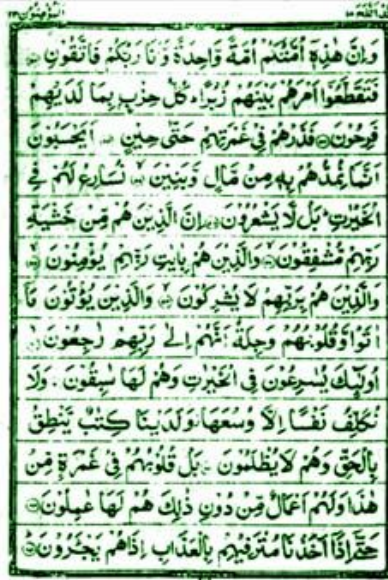 قدافلح ١٨ المؤمنون ٢٣
وَاِنَّ هٰذِهٖٓ اُمَّتُكُمْ اُمَّةً وَّاحِدَةً وَّاَنَا رَبُّكُمْ فَاتَّقُوْنِ
فَتَقَطَّعُوْٓا اَمْرَهُمْ بَيْنَهُمْ زُبُرًا ؕ كُلُّ حِزْبٍۭ بِمَا لَدَيْهِمْ
فَرِحُوْنَ فَذَرْهُمْ فِيْ غَمْرَتِهِمْ حَتّٰى حِيْنٍ اَيَحْسَبُوْنَ
اَنَّمَا نُمِدُّهُمْ بِهٖ مِنْ مَّالٍ وَّبَنِيْنَ نُسَارِعُ لَهُمْ فِي
الْخَيْرٰتِ ؕ بَلْ لَّا يَشْعُرُوْنَ اِنَّ الَّذِيْنَ هُمْ مِّنْ خَشْيَةِ
رَبِّهِمْ مُّشْفِقُوْنَ وَالَّذِيْنَ هُمْ بِاٰيٰتِ رَبِّهِمْ يُؤْمِنُوْنَ
وَالَّذِيْنَ هُمْ بِرَبِّهِمْ لَا يُشْرِكُوْنَ وَالَّذِيْنَ يُؤْتُوْنَ مَآ
اٰتَوْا وَّقُلُوْبُهُمْ وَجِلَةٌ اَنَّهُمْ اِلٰى رَبِّهِمْ رٰجِعُوْنَ
اُولٰٓئِكَ يُسٰرِعُوْنَ فِي الْخَيْرٰتِ وَهُمْ لَهَا سٰبِقُوْنَ وَلَا
نُكَلِّفُ نَفْسًا اِلَّا وُسْعَهَا وَلَدَيْنَا كِتٰبٌ يَّنْطِقُ
بِالْحَقِّ وَهُمْ لَا يُظْلَمُوْنَ بَلْ قُلُوْبُهُمْ فِيْ غَمْرَةٍ مِّنْ
هٰذَا وَلَهُمْ اَعْمَالٌ مِّنْ دُوْنِ ذٰلِكَ هُمْ لَهَا عٰمِلُوْنَ
حَتّٰٓى اِذَآ اَخَذْنَا مُتْرَفِيْهِمْ بِالْعَذَابِ اِذَا هُمْ يَجْـَٔرُوْنَ